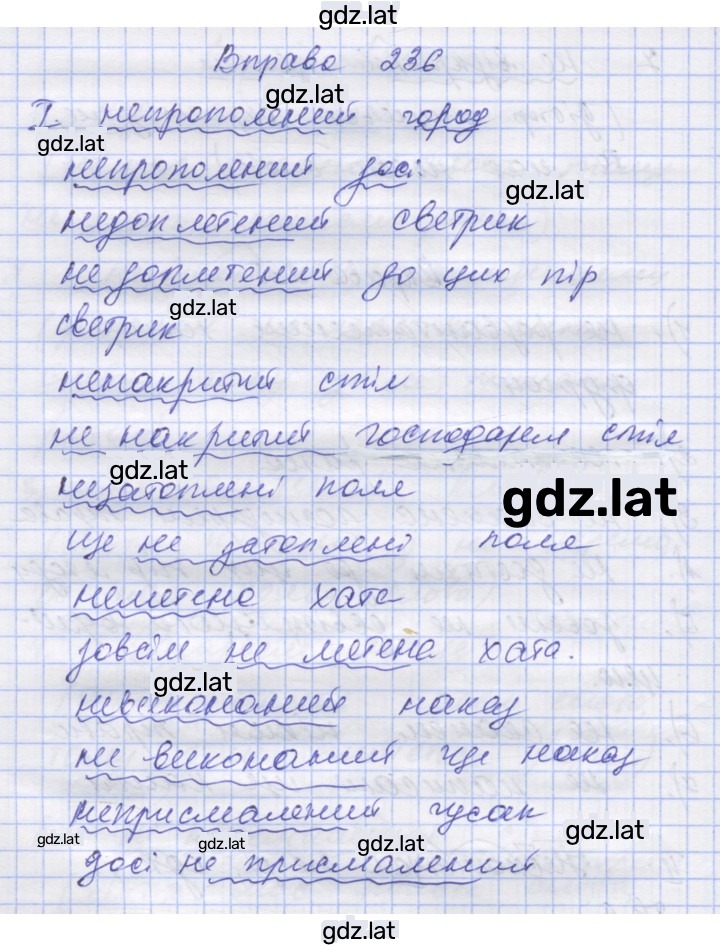 gdz.lat
Вправа 236
gdz.lat
І. непрополений город
gdz.lat
непрополений досі.
gdz.lat
недоплетений светрик
недоплетений до цих пір
gdz.lat
светрик
ненакритий стіл
не накритий господарем стіл
gdz.lat
незатоплені поля
gdz.lat
ще не затоплені поля
неметена хата
зовсім не метена хата.
gdz.lat
невиконаний наказ
не виконаний ще наказ
неприсмалений гусак
gdz.lat gdz.lat gdz.lat gdz.lat
досі не присмалений
gdz.lat